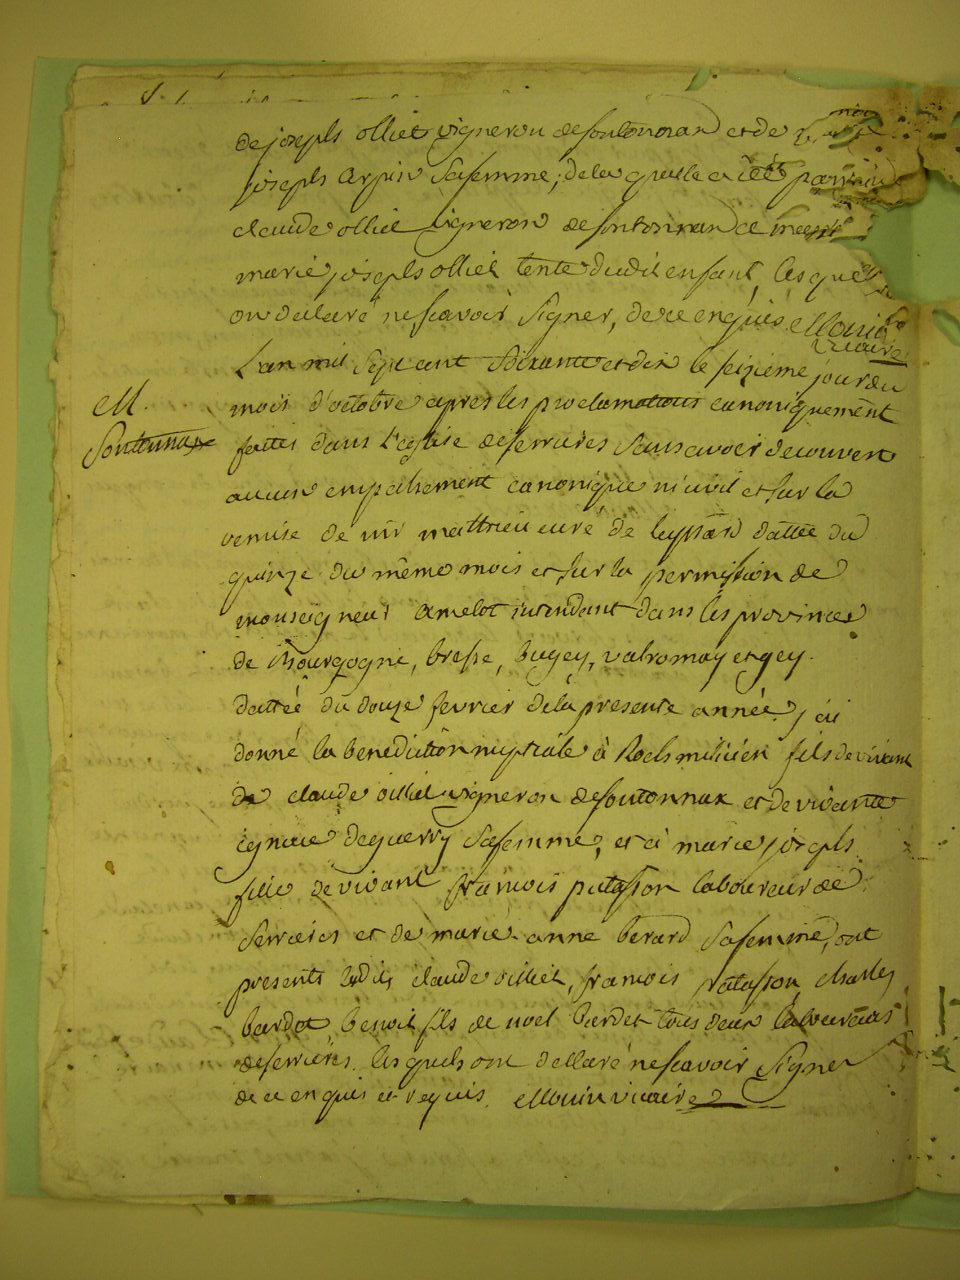 de joseph olliet vigneron de sontonnax et de
joseph arpin sa femme; de la quelle a été parrain
claude olliet vigneron de sontonnax et
marie joseph olliet tente dudit enfant, les quels
on declaré ne scavoir signer, de ce enquis. Mouin
vicaire
L'an mil sept cent soixante et dix le seizieme jour du
M.
mois d'octobre apres les proclamations canoniquement
Sontonnax
faites dans l'eglise de serrieres sans avoir decouvert
aucun empechement canonique ni civil et sur la
remise de mr matthieu curé de dattée du
quinze du même mois et sur la permission de
monseigneur amelot intendant dans les provinces
de Bourgogne, bresse, bugey, valromay et gey.
dattée du douze fevrier de la presente année, j'ai
donné la benediction nuptiale à Roch milicien fils de vivant
de claude oilliet vigneron de sontonnax et de vivante
deguerry sa femme, et à marie joseph
fille de vivant francois putasson laboureur de
serrieres et de marie anne berard sa femme, ont
presents lesdits claude oilliet, francois putasson, charles
bardet, benoit fils de noel bardet tous deux laboureurs
de serrieres. les quels ont dellaré ne scavoir signer
de ce enquis et requis. Mouin vicaire